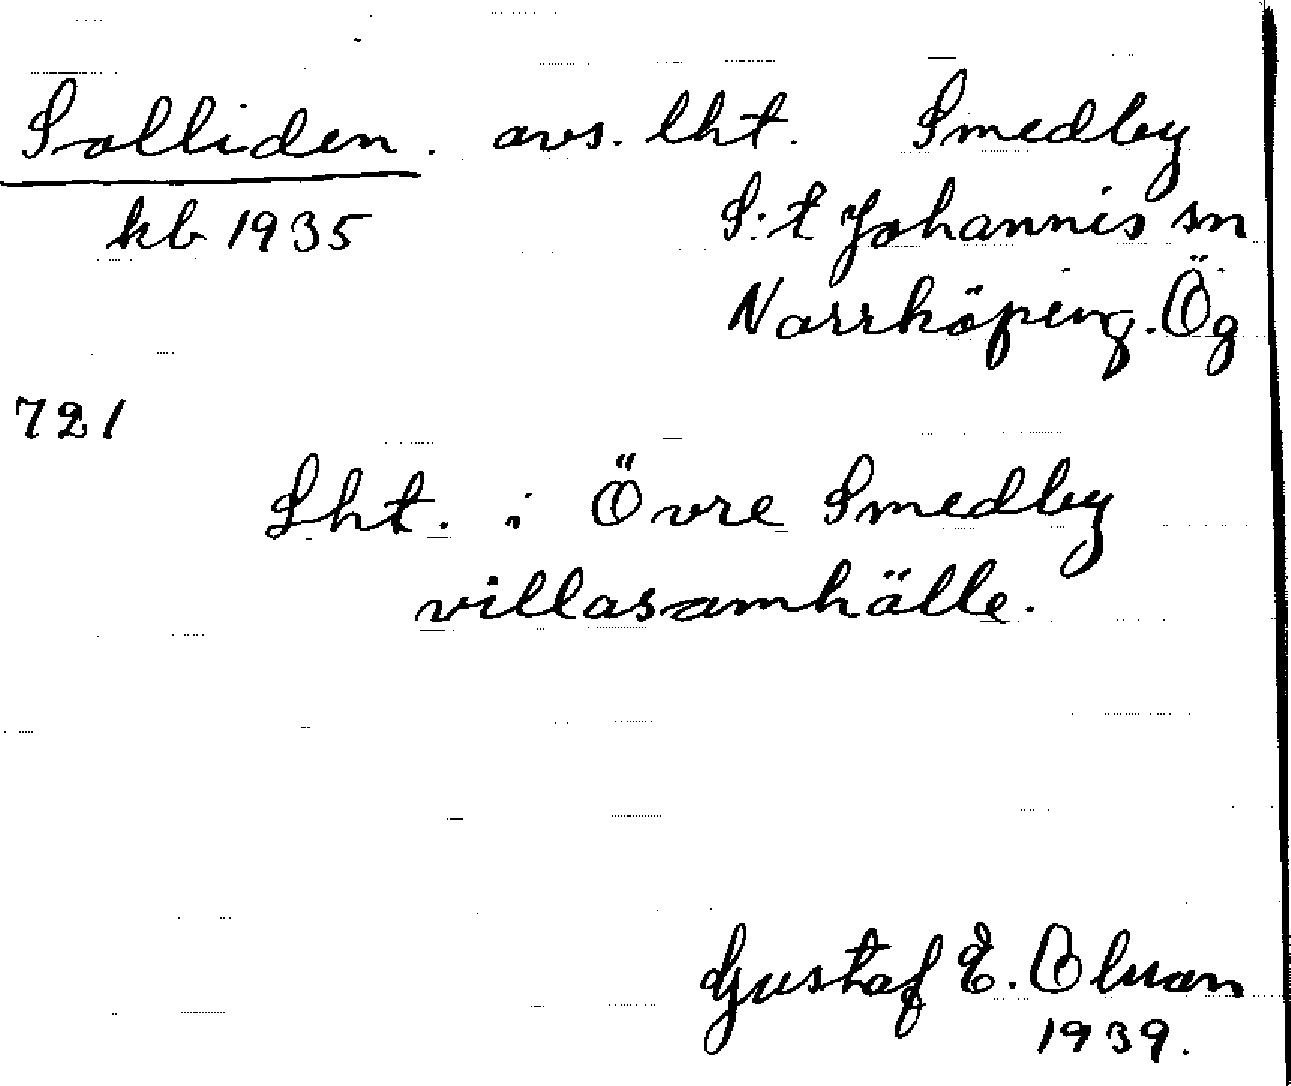 Solliden. avs. lht. Smedby
kb 1935 S:t Johannis sn
Norrköping. Ög
721
Lht. i Övre Smedby
villasamhälle.
Gustaf E. Olsson
1939.